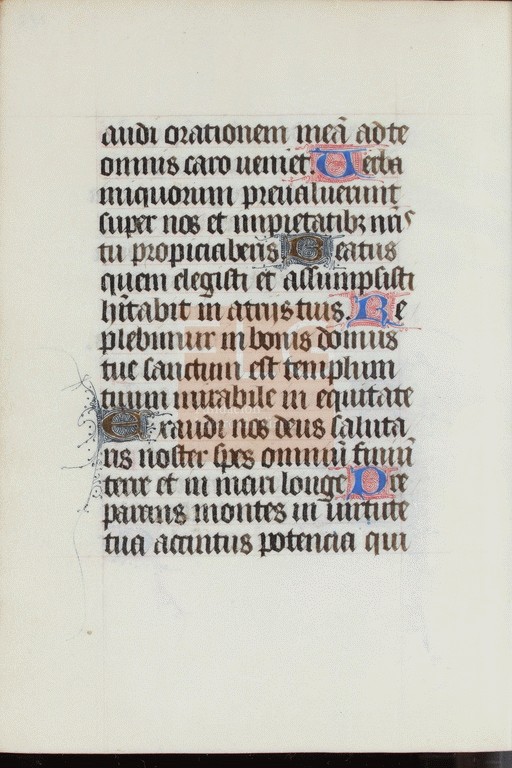 audi orationem meā ad te
omnis caro veniet. Verba
iniquorum prevaluerunt
super nos et impietatibz nr̄is
tu propiciaberis. Beatus
quem elegisti et assumpsisti
hītabit in atrijs tuis. Re
plebimur in bonis domus
tue sanctum est templum
tuum mirabile in equitate
Exaudi nos deus saluta
ris noster spes omniū finiū
terre et in mari longe Pre
parans montes in virtute
tua accintus potencia qui